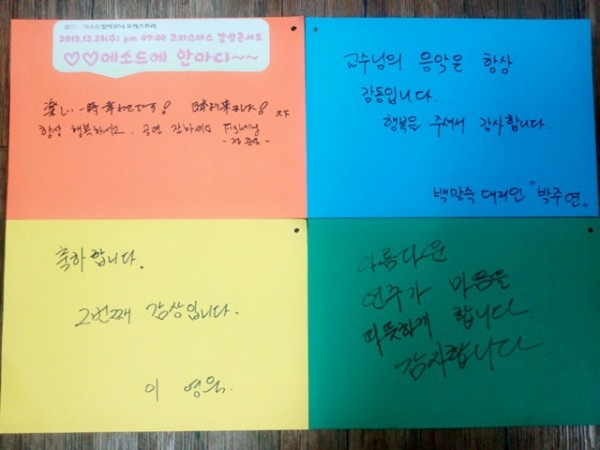 2015.12.23(수) pm 07:00 크리스마스 감성콘서트
♡♡에소드에 한마디~~
楽しい 一時 幸わせです! 日本から来ました!
항상 행복하시고. 공연 감사해요
교수님의 음악은 항상
감동입니다.
행복을 주셔서 감사합니다.
백말숙 대리인 "박주연"
축하합니다.
2번째 감상입니다.
이 영원.
아름다운
연주가 마음을
따뜻하게 합니다
감사합니다